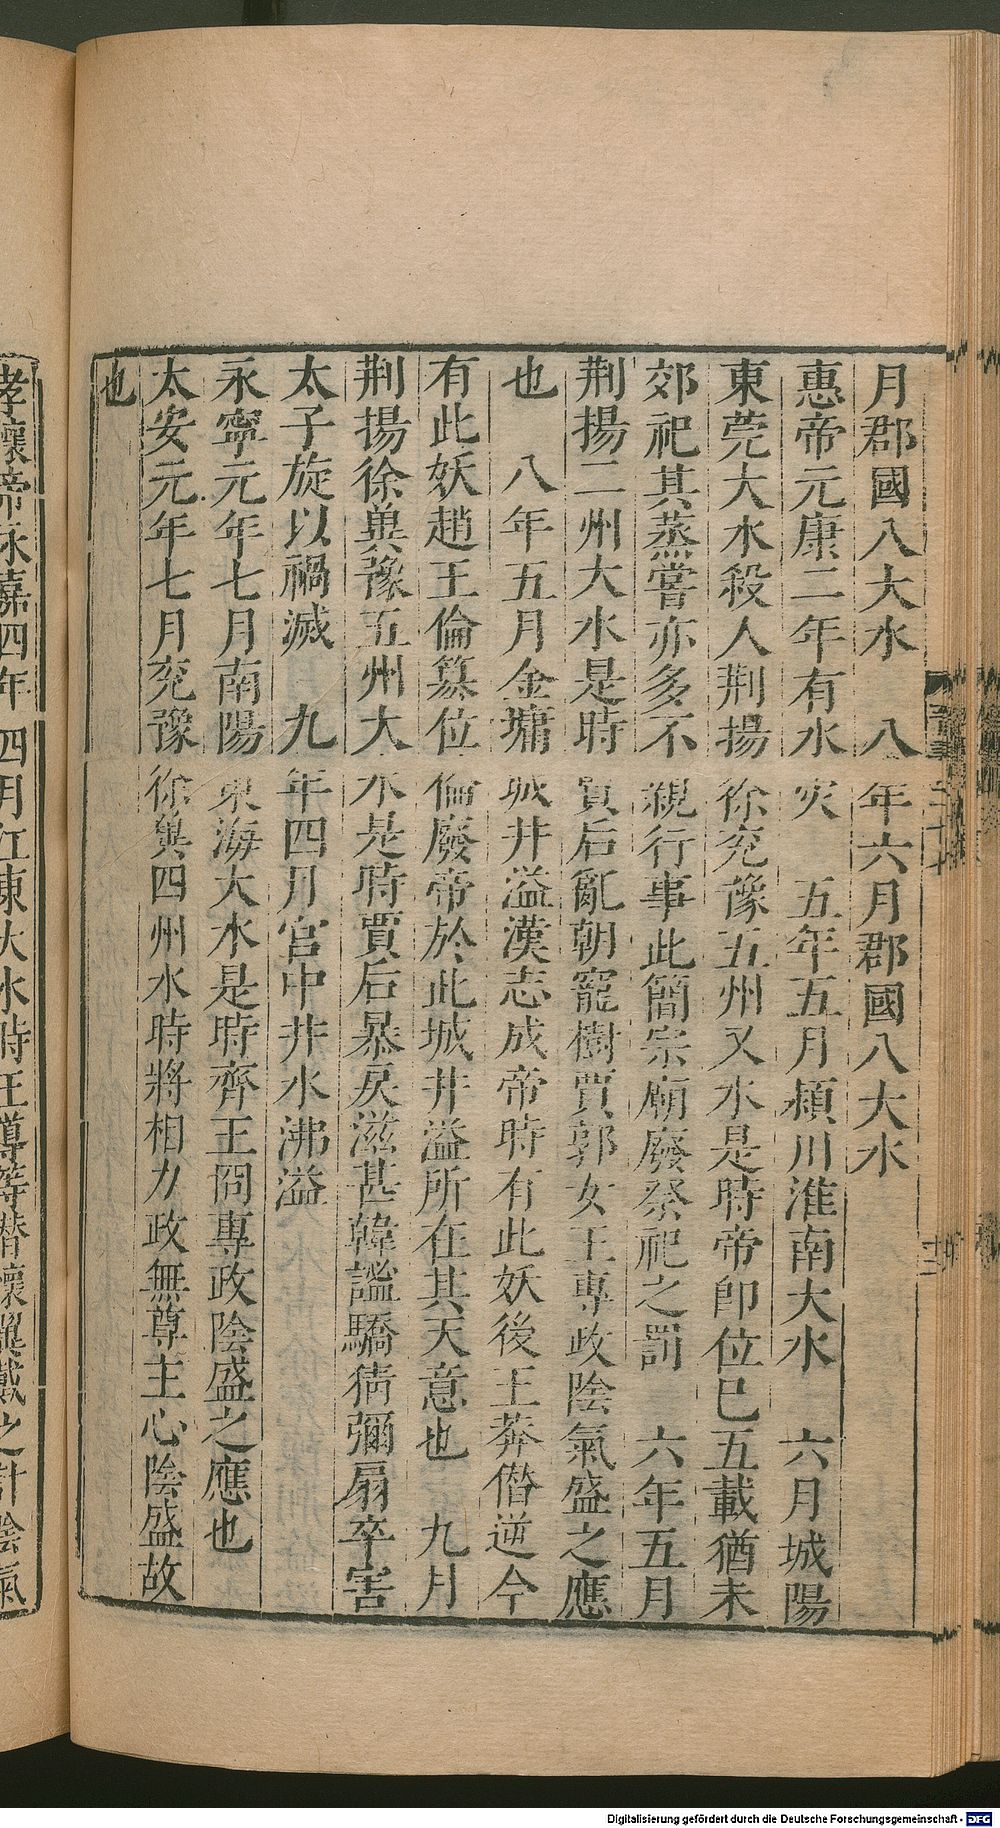 月郡國八大水　八年六月郡國八大水
惠帝元康二年有水灾　五年五月頴川淮南大水　六月城陽
東莞大水殺人荆揚徐兖豫五州又水是時帝即位已五載猶未
郊祀其蒸嘗亦多不親行事此簡宗廟廢祭祀之罰　六年五月
荆揚二州大水是時賈后亂朝寵樹賈郭女主專政陰氣盛之應
也　八年五月金墉城井溢漢志成帝時有此妖後王莽僭逆今
有此妖趙王倫簒位倫廢帝於此城井溢所在其天意也　九月
荆揚徐兾豫五州大水是時賈后暴戾滋甚韓謐驕猜彌扇卒害
太子旋以禍滅　九年四月宫中井水沸溢
永寧元年七月南陽東海大水是時齊王冏專政陰盛之應也
太安元年七月兖豫徐兾四州水時將相力政無尊主心陰盛故
也
孝懷帝永嘉四年四月江東大水時王導等潜懷翼戴之計陰氣
Digitalisierung gefördert durch die Deutsche Forschungsgemeinschaft - DFG